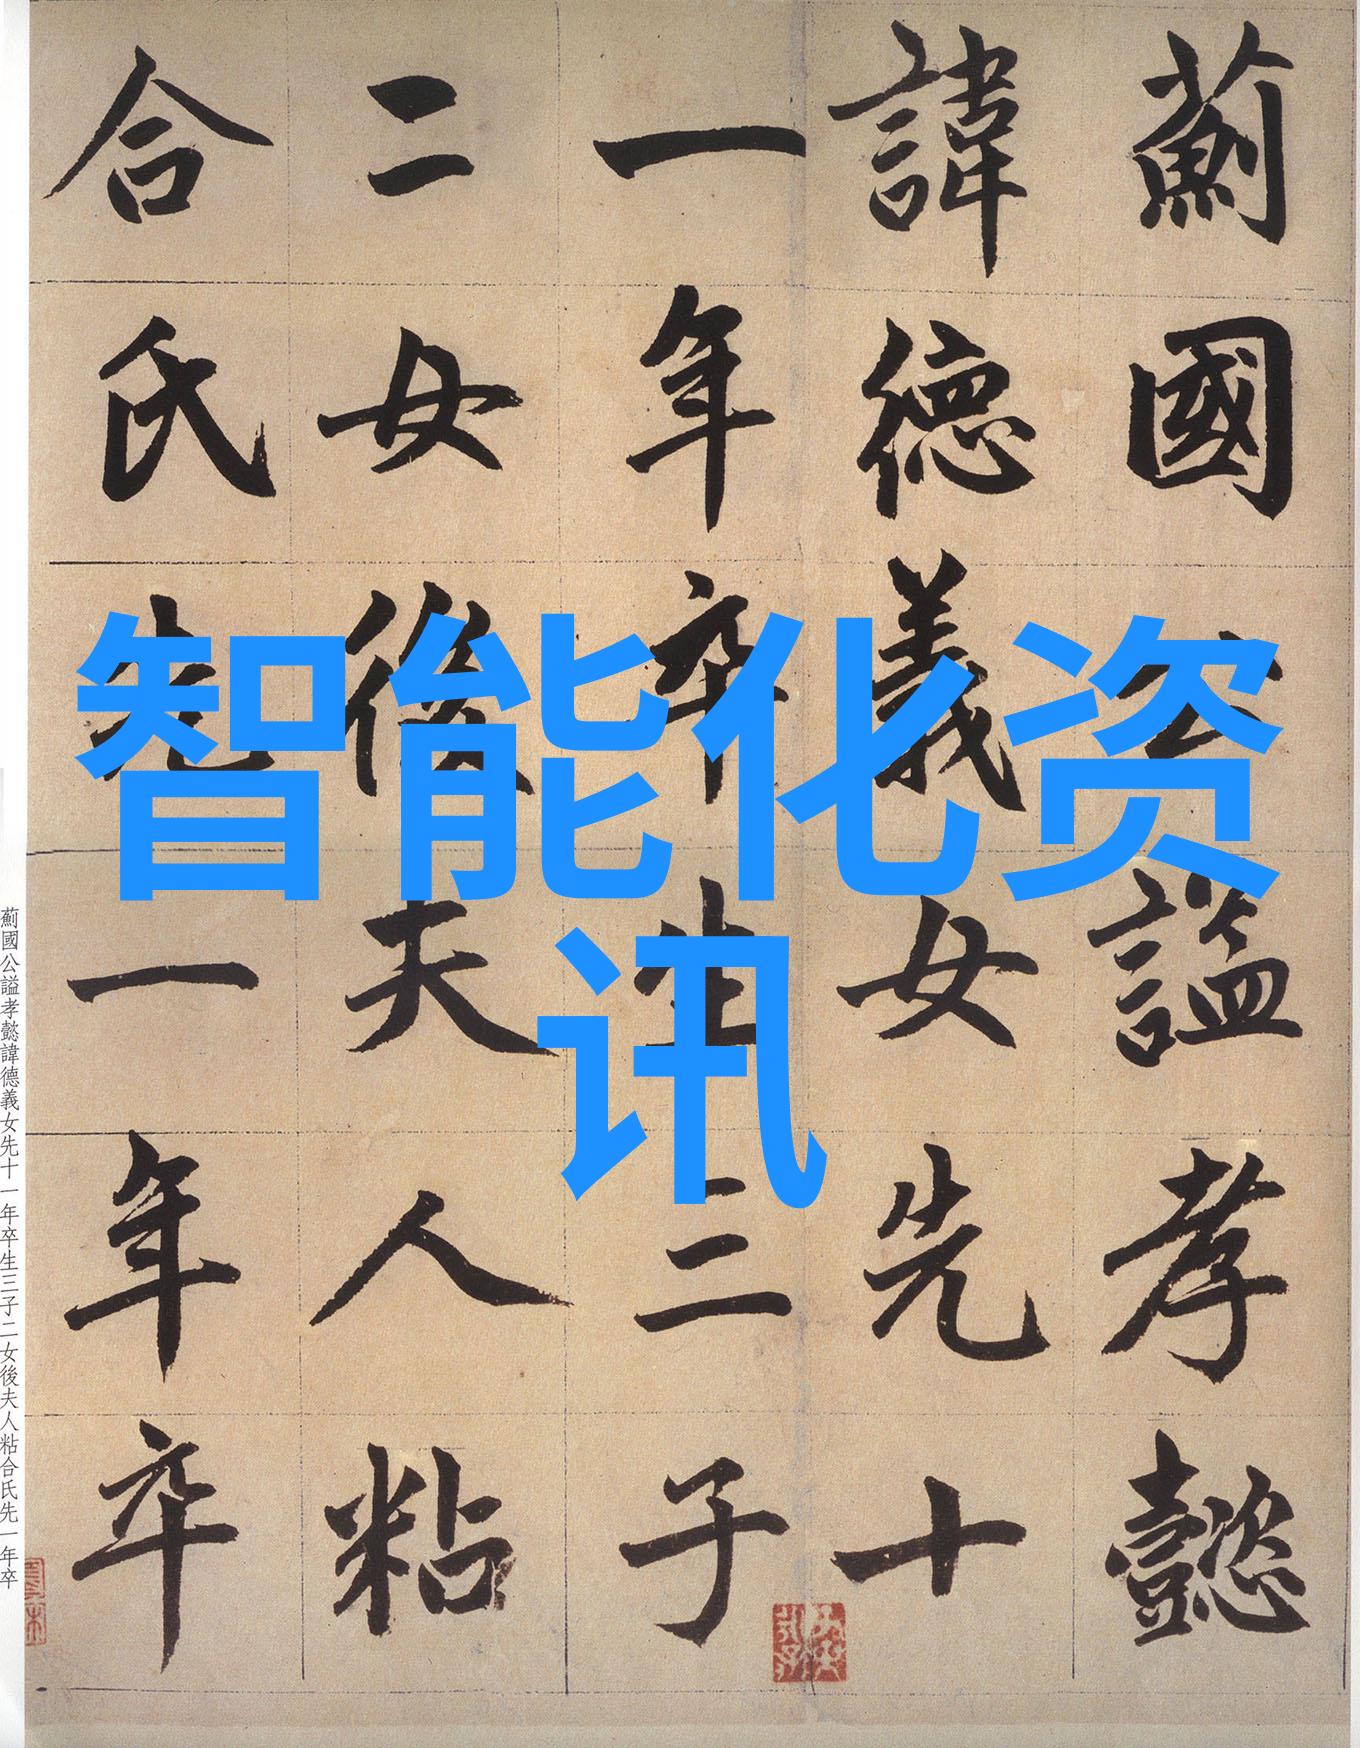 薊國公謚孝懿
諱德義女先十
一年卒生三子
二女後夫人粘
合氏先一年卒
薊國公謚孝懿諱德義女先十一年卒生三子二女後夫人粘合氏先一年卒
智能化资
讯